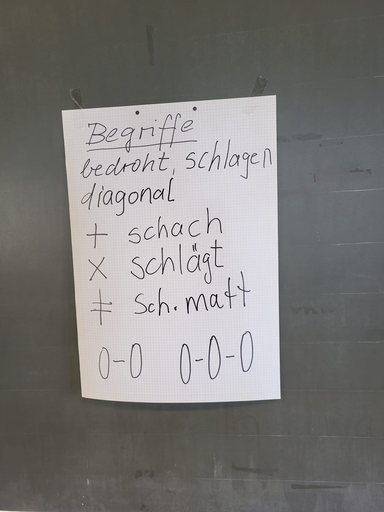 Begriffe
bedroht, schlagen
diagonal
+ schach
x schlägt
‡ Sch.matt
0-0 0-0-0